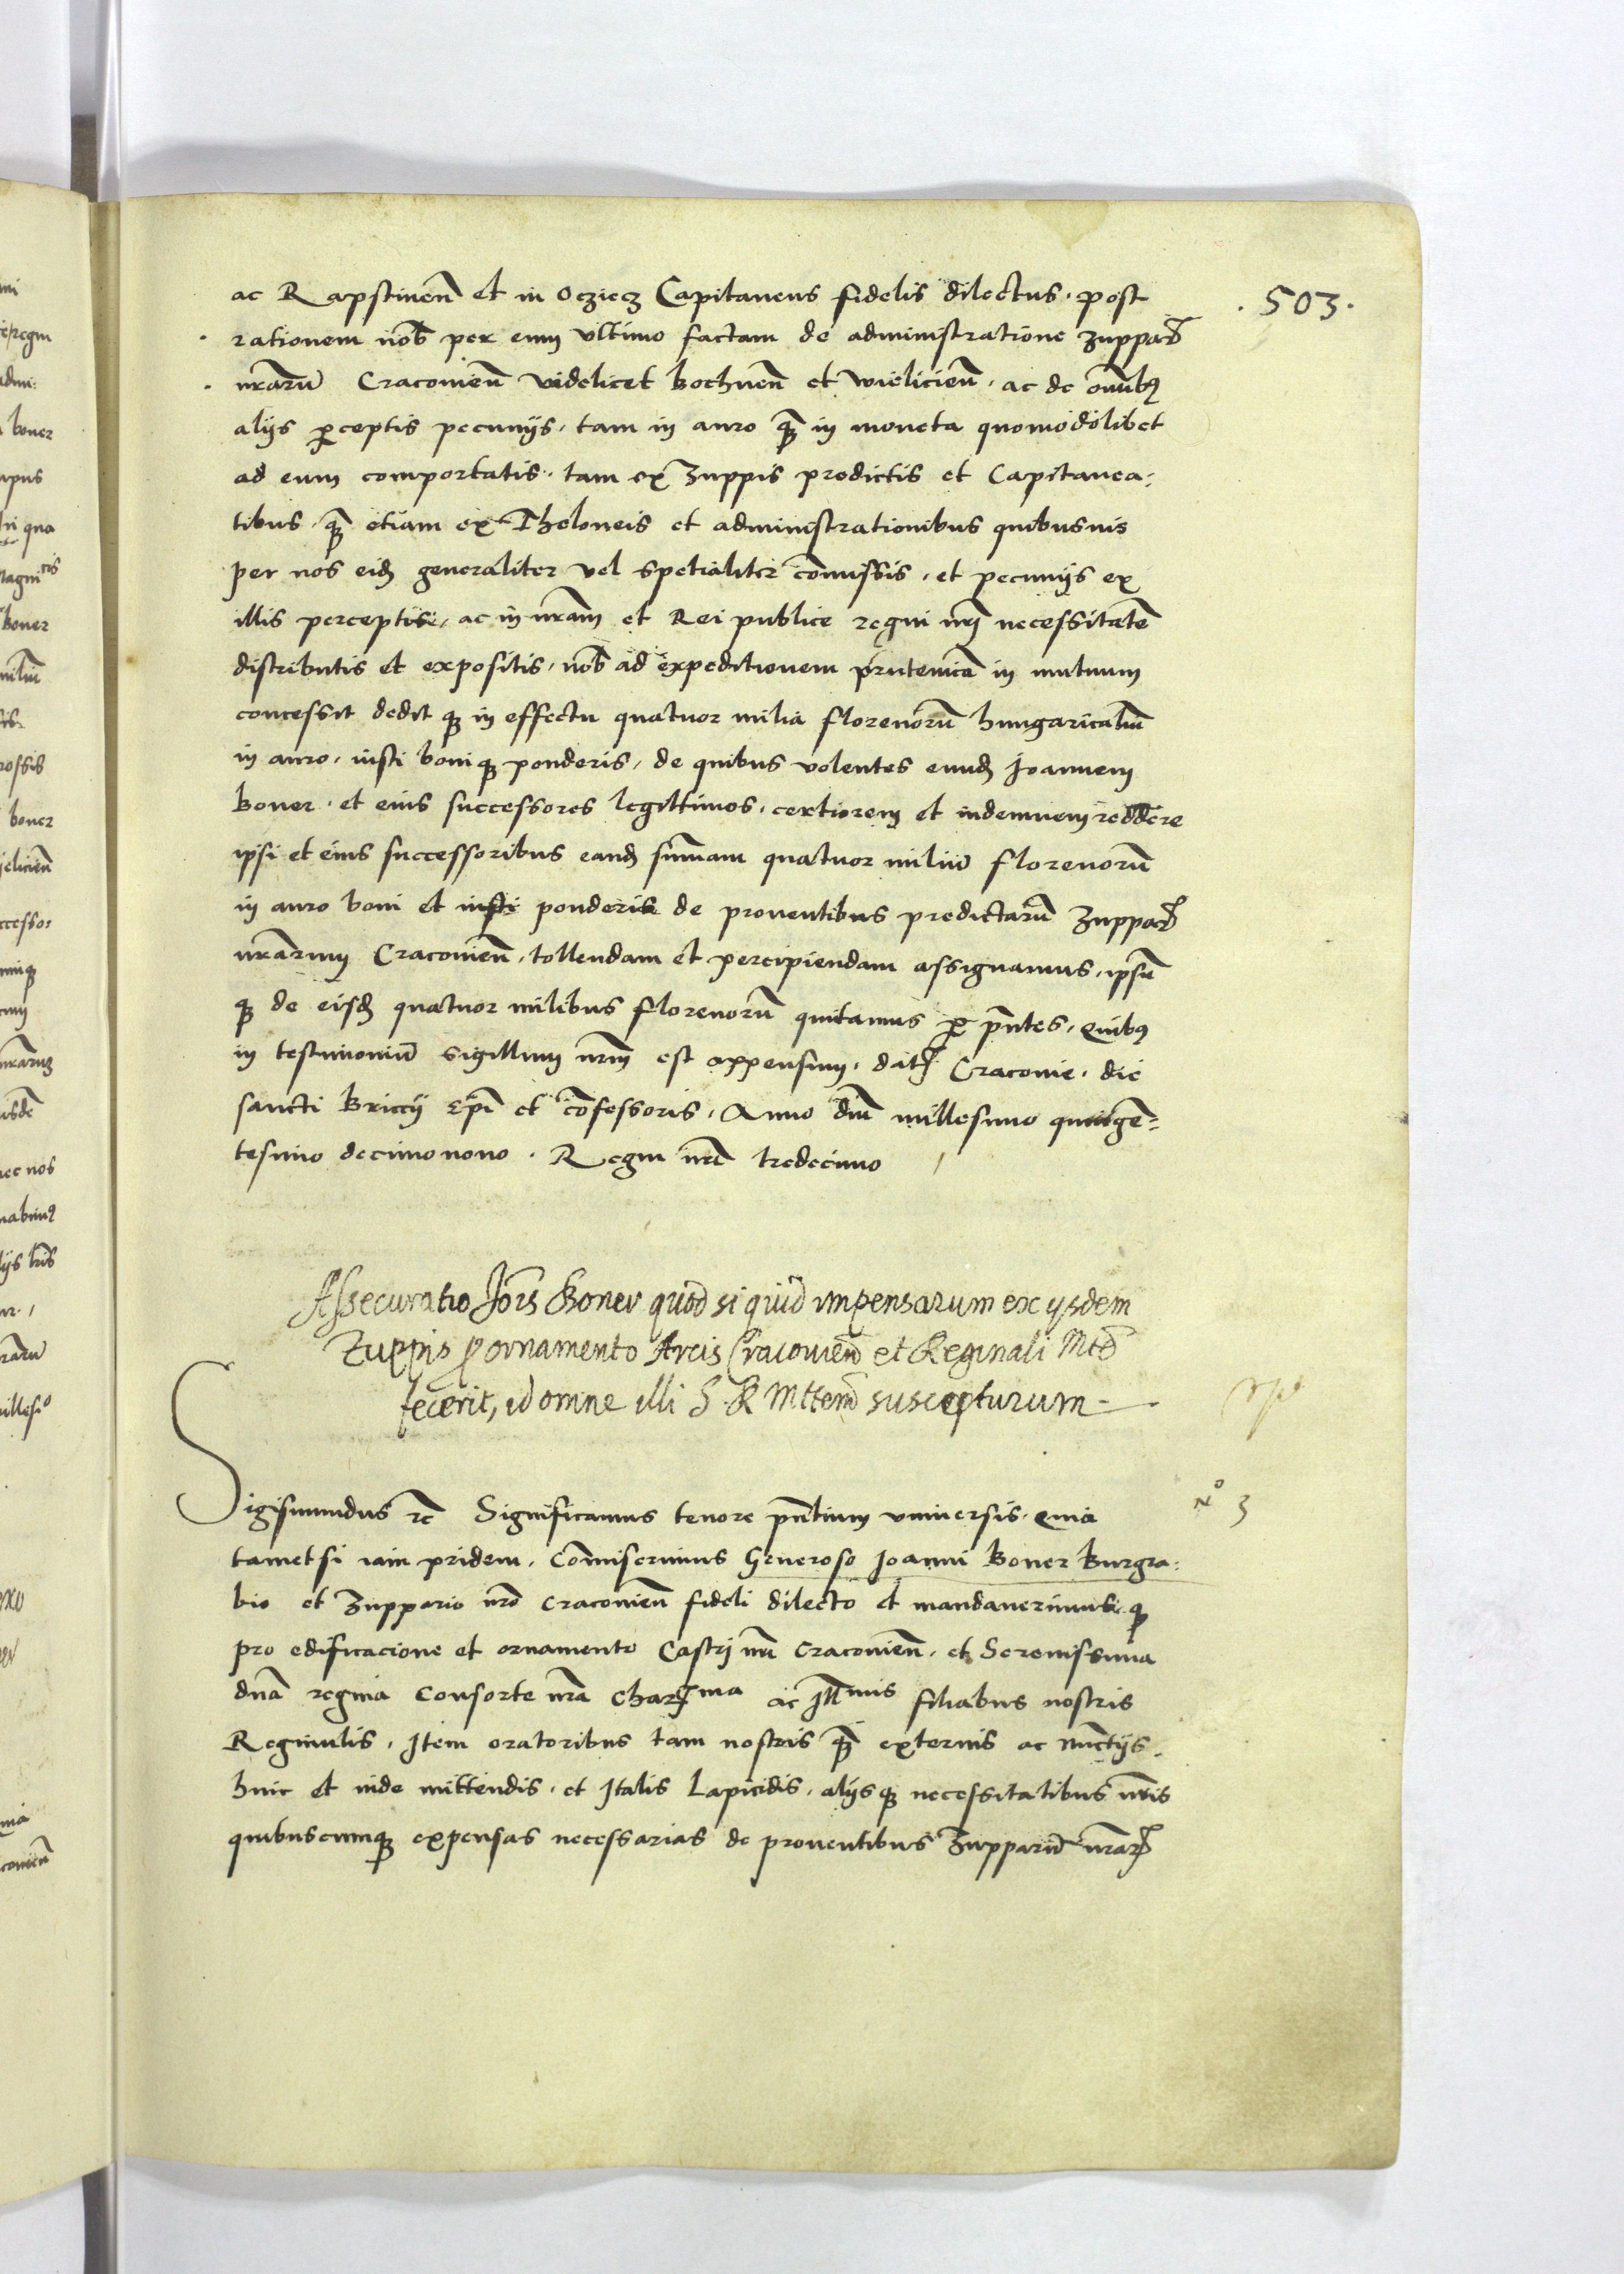 . 503 .
ac Rapstinen̄ et in Ocziecz Capitaneus fidelis dilectus . post
rationem nob̄ per eum vltimo factam de administratione Zuppar
nr̄arū Cracouien̄ videlicet bochnen̄ et wielicien̄ . ac de om̄ibꝰ
alijs ꝑceptis pecunijs . tam in auro ꝙ̄ in moneta quomodolibet
ad eum comportatis . tam ex Zuppis predictis et Capitanea:
tibus . ꝙ̄ etiam ex Theloneis et administrationibus quibusuis
per nos eid̄ generaliter vel spetialiter com̄issis . et pecunijs ex
illis perceptis . ac in nr̄am et Rei publice regni nr̄i necessitatē
distributis et expositis . nob̄ ad expeditionem prutenicā in mutuum
concessit dedit qꝫ in effectu quatuor milia florenorū hungaricaliū
in auro . iusti boniqꝫ ponderis . de quibus volentes eund̄ Joannem
boner . et eius successores legittimos . certiorem et indemnem reddere
ipsi et eius successoribus eand̄ sum̄am quatuor miliū florenorū
in auro boni et iusti ponderis de prouentibus predictarū Zuppar
nr̄arum Cracouien̄ . tollendam et percipiendam assignamus . ipsū
qꝫ de eisd̄ quatuor milibus florenorū quitamus ꝑ pn̄tes . Quibꝰ
in testimoniū sigillum nr̄m est appensum . dat̄ Cracouie . die
sancti Briccij Ep̄i et cōfessoris . Anno dn̄i millesimo quingē=
tesimo decimonono . Regni nr̄i tredecimo
Assecuratio Jōis Boner quod si quid impensarum ex ijsdem
Zuppis ꝓ ornamento Arcis Cracouien̄ et Reginali Mtē
fecerit, id omne illi S. R Mttem̄ suscepturum
Nº 3
Sigismundus ꝛc̄ Significamus tenore pn̄tium vniuersis . Quia
tametsi iam pridem . Com̄iserimus Generoso Joanni Boner Burgra:
bio et Zuppario nr̄o Cracouien̄ fideli dilecto et mandauerimus qꝫ
pro edificacione et ornamento Castri nr̄i Cracouien̄ . et Serenissima
dn̄a regina Consorte nr̄a Charma ac Illmis filiabus nostris
Reginulis . Item oratoribus tam nostris ꝙ̄ externis ac nunctijs .
hinc et inde mittendis . et Italis Lapicidis . alijsqꝫ necessitatibus nr̄is
quibuscunqꝫ expensas necessarias de prouentibus Zupparū nr̄ar